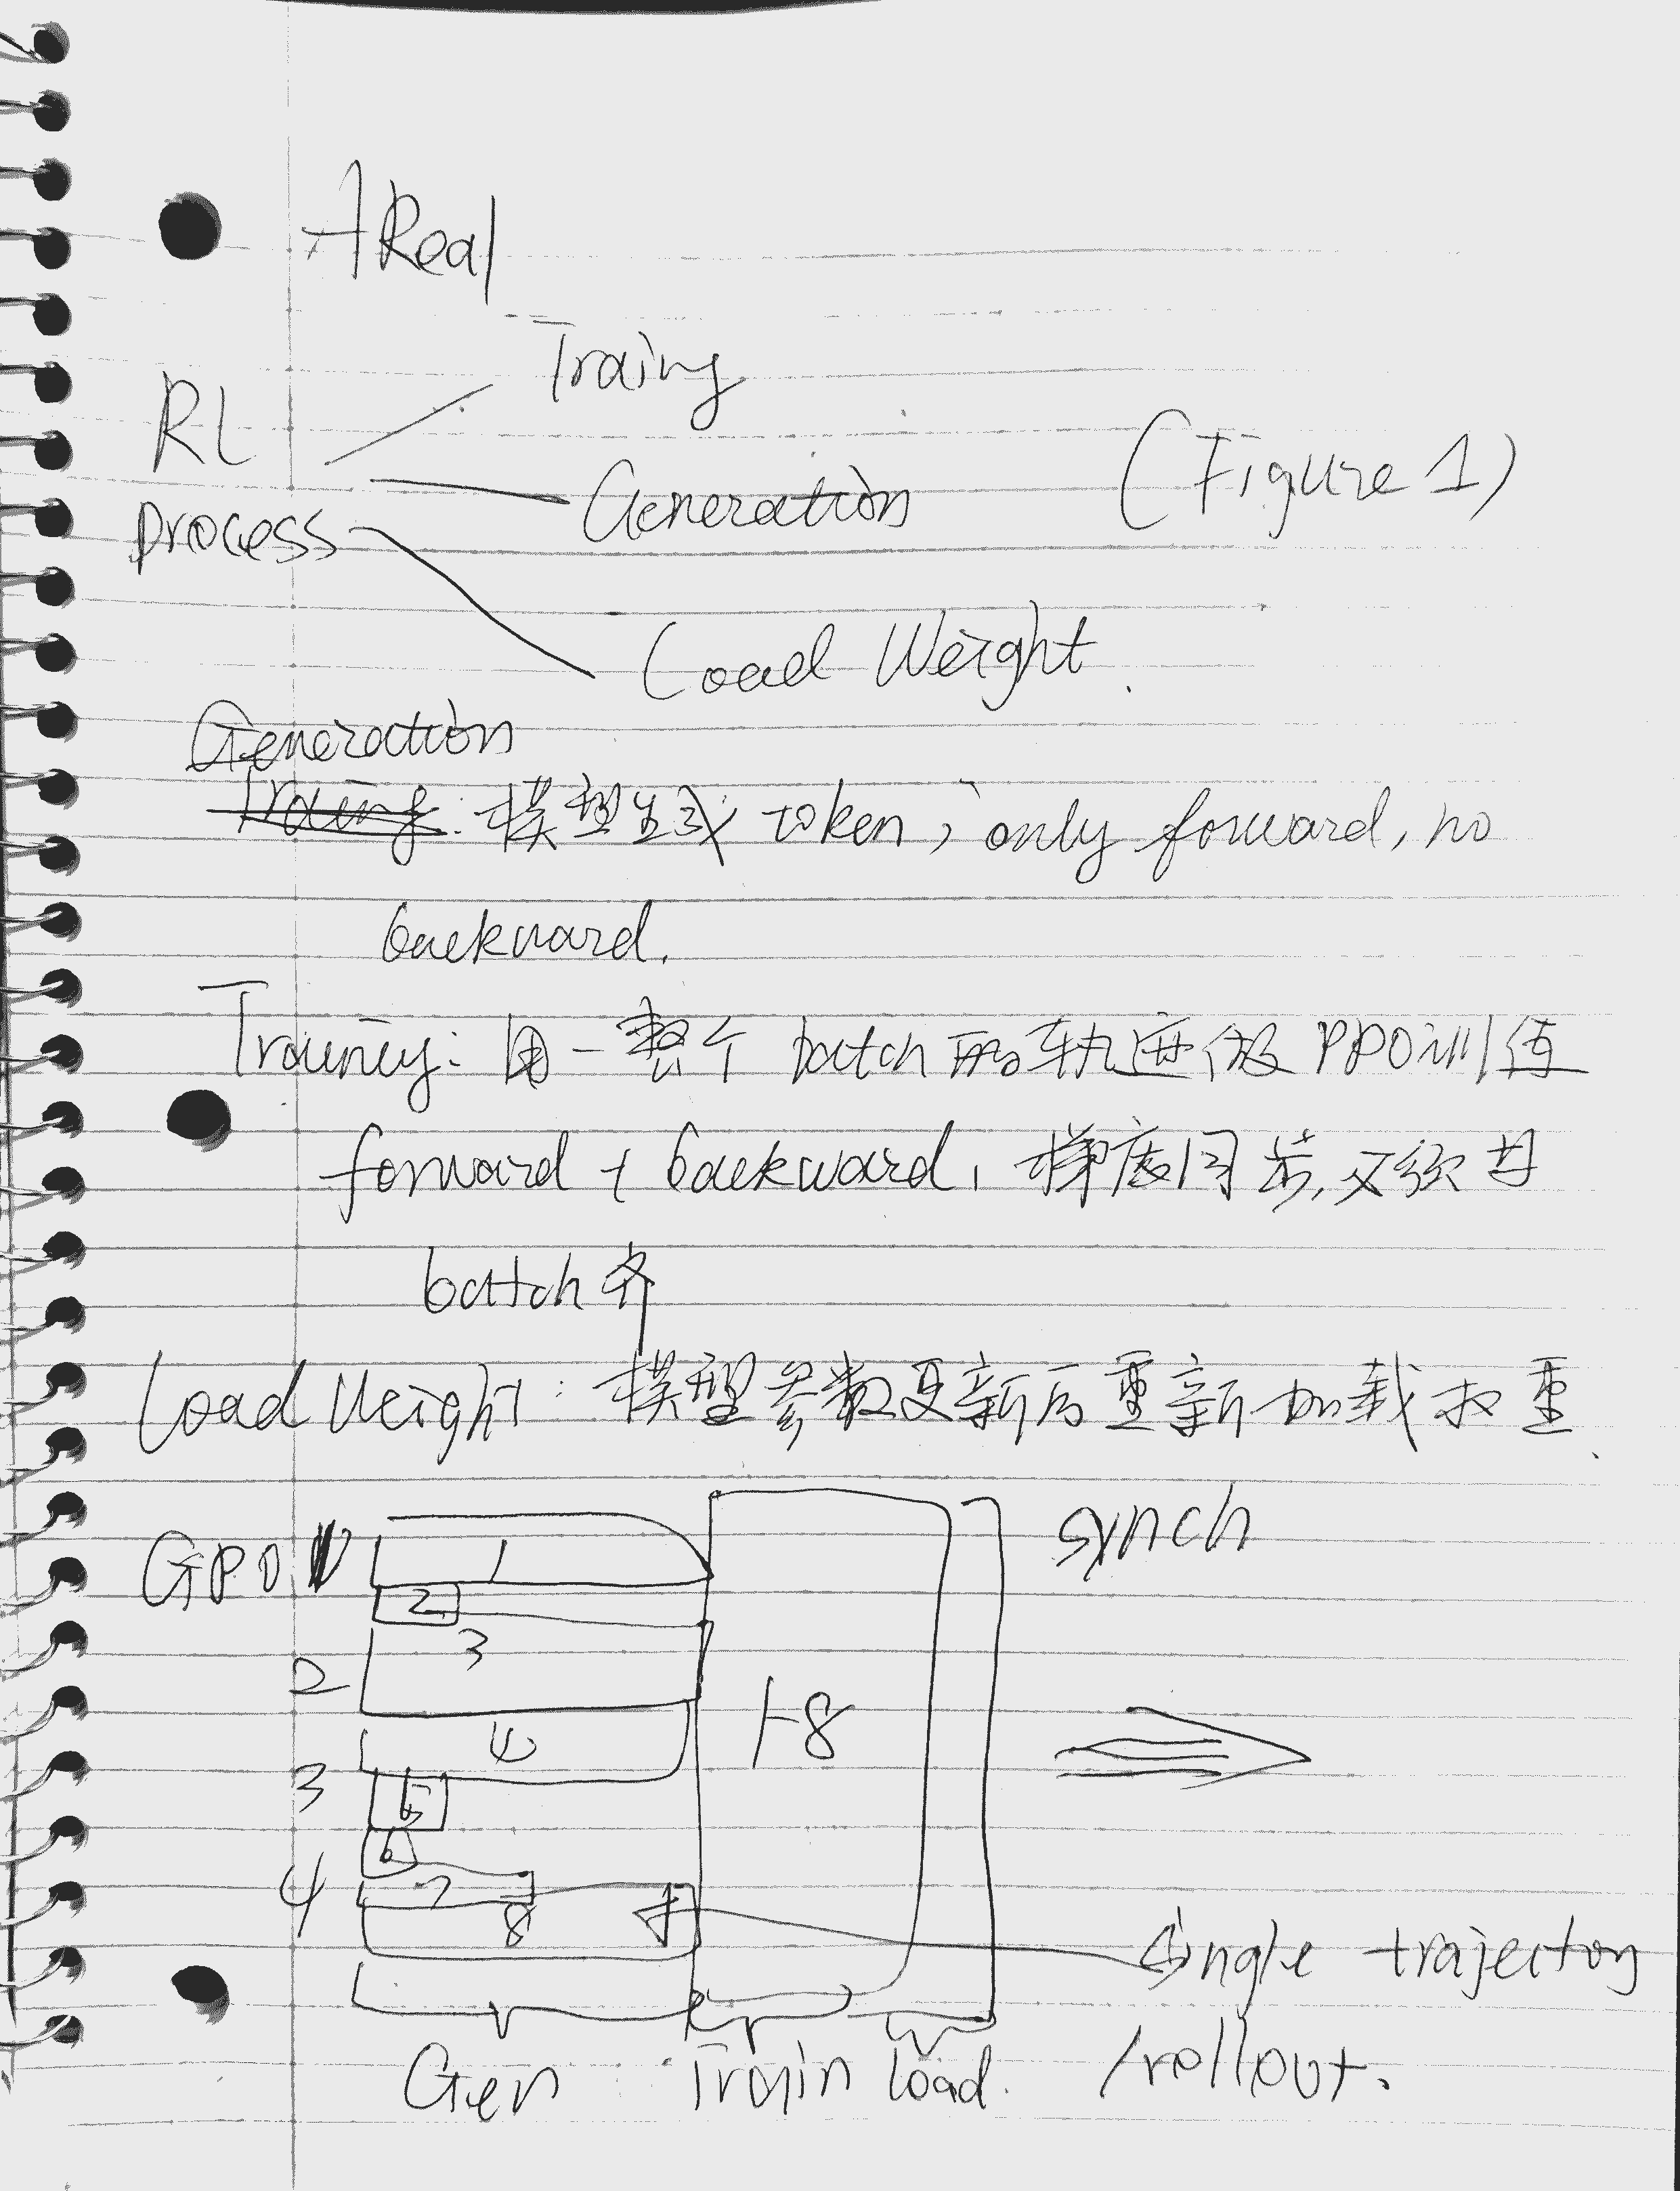 AReal
Traing
RL
Generation
(Figure 1)
process
Load Weight.
Generation
Traing: 模型生成 token, only forward, no
backward.
Training: 用一整个 batch 的轨迹做 PPO训练
forward + backward, 梯度同步, 必须等
batch 齐
Load Weight: 模型参数更新后重新加载权重.
synch
GPU 1
1
2
3
2
4
1-8
3
5
6
4
7
8
single trajectory
Gen Train load. /rollout.